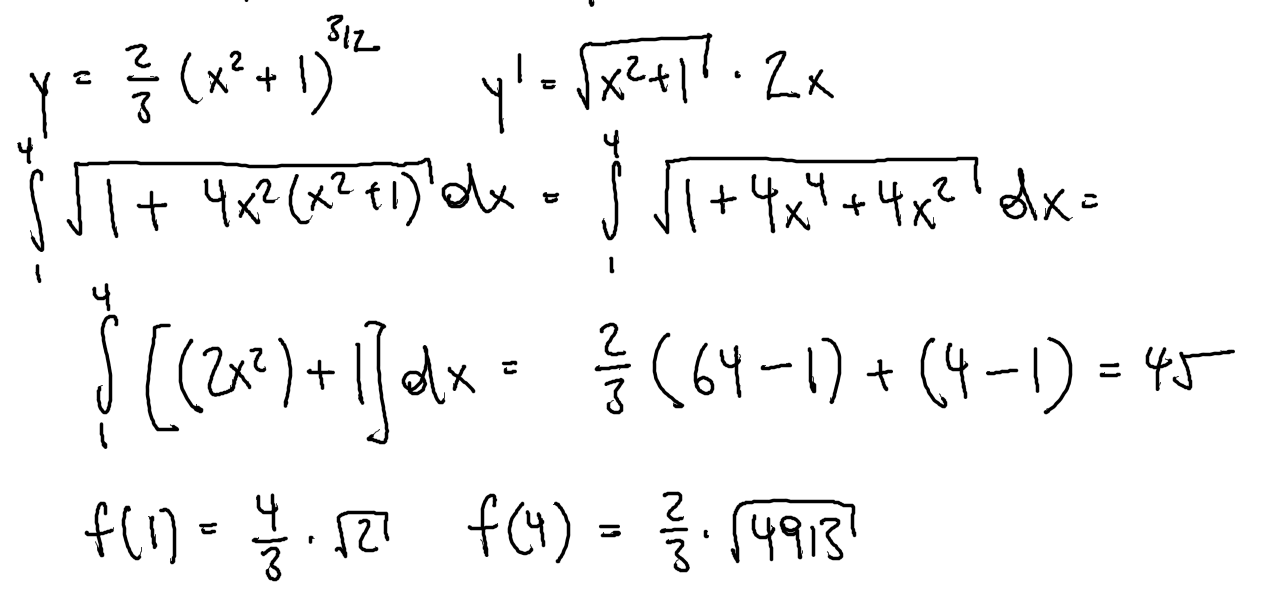 y = 2/3 (x² + 1)^(3/2)    y' = √(x²+1) · 2x
∫₁⁴ √(1 + 4x²(x²+1)) dx = ∫₁⁴ √(1+4x⁴+4x²) dx =
∫₁⁴ [(2x²)+1] dx = 2/3 (64-1) + (4-1) = 45
f(1) = 4/3 · √2    f(4) = 2/3 · √4913